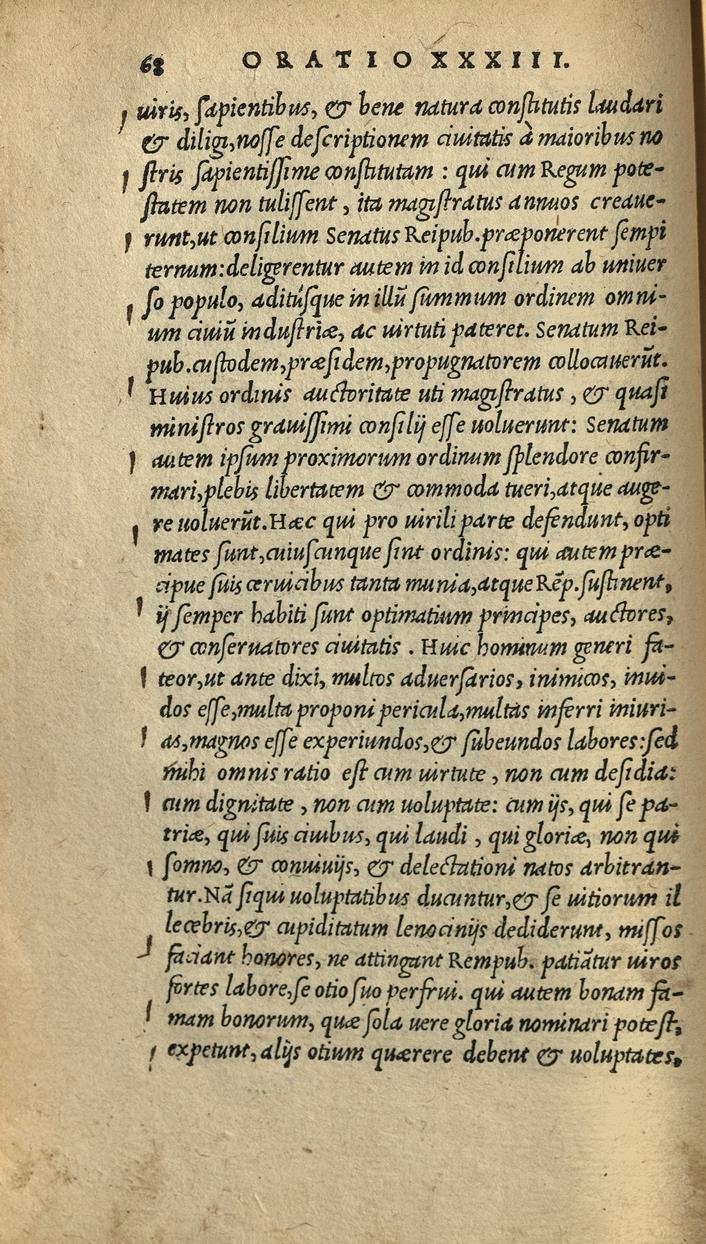 68 ORATIO XXXIII.
uiris, sapientibus, & bene natura constitutis laudari
& diligi,nosse descriptionem ciuitatis à maioribus no
stris sapientissime constitutam : qui cum Regum pote-
statem non tulissent , ita magistratus annuos creaue-
runt,ut consilium Senatus Reipub.præponerent sempi
ternum:deligerentur autem in id consilium ab uniuer
so populo, aditúsque in illū summum ordinem omni-
um ciuiū industriæ, ac uirtuti pateret. Senatum Rei-
pub.custodem,præsidem,propugnatorem collocauerūt.
Huius ordinis auctoritate uti magistratus , & quasi
ministros grauissimi consilij esse uoluerunt: Senatum
autem ipsum proximorum ordinum splendore confir-
mari,plebis libertatem & commoda tueri,atque auge-
re uoluerūt.Hæc qui pro uirili parte defendunt, opti
mates sunt,cuiuscunque sint ordinis: qui autem præ-
cipue suis ceruicibus tanta munia,atque Rēp.sustinent,
ij semper habiti sunt optimatium principes, auctores,
& conseruatores ciuitatis . Huic hominum generi fa-
teor,ut ante dixi, multos aduersarios, inimicos, inui-
dos esse,multa proponi pericula,multas inferri iniuri-
as,magnos esse experiundos,& subeundos labores:sed
mihi omnis ratio est cum uirtute , non cum desidia:
cum dignitate , non cum uoluptate: cum ijs, qui se pa-
triæ, qui suis ciuibus, qui laudi , qui gloriæ, non qui
somno, & conuiuijs, & delectationi natos arbitran-
tur.Nā siqui uoluptatibus ducuntur,& se uitiorum il
lecebris,& cupiditatum lenocinijs dediderunt, missos
faciant honores, ne attingant Rempub. patiātur uiros
fortes labore,se otio suo perfrui. qui autem bonam fa-
mam bonorum, quæ sola uere gloria nominari potest,
expetunt,alijs otium quærere debent & uoluptates,